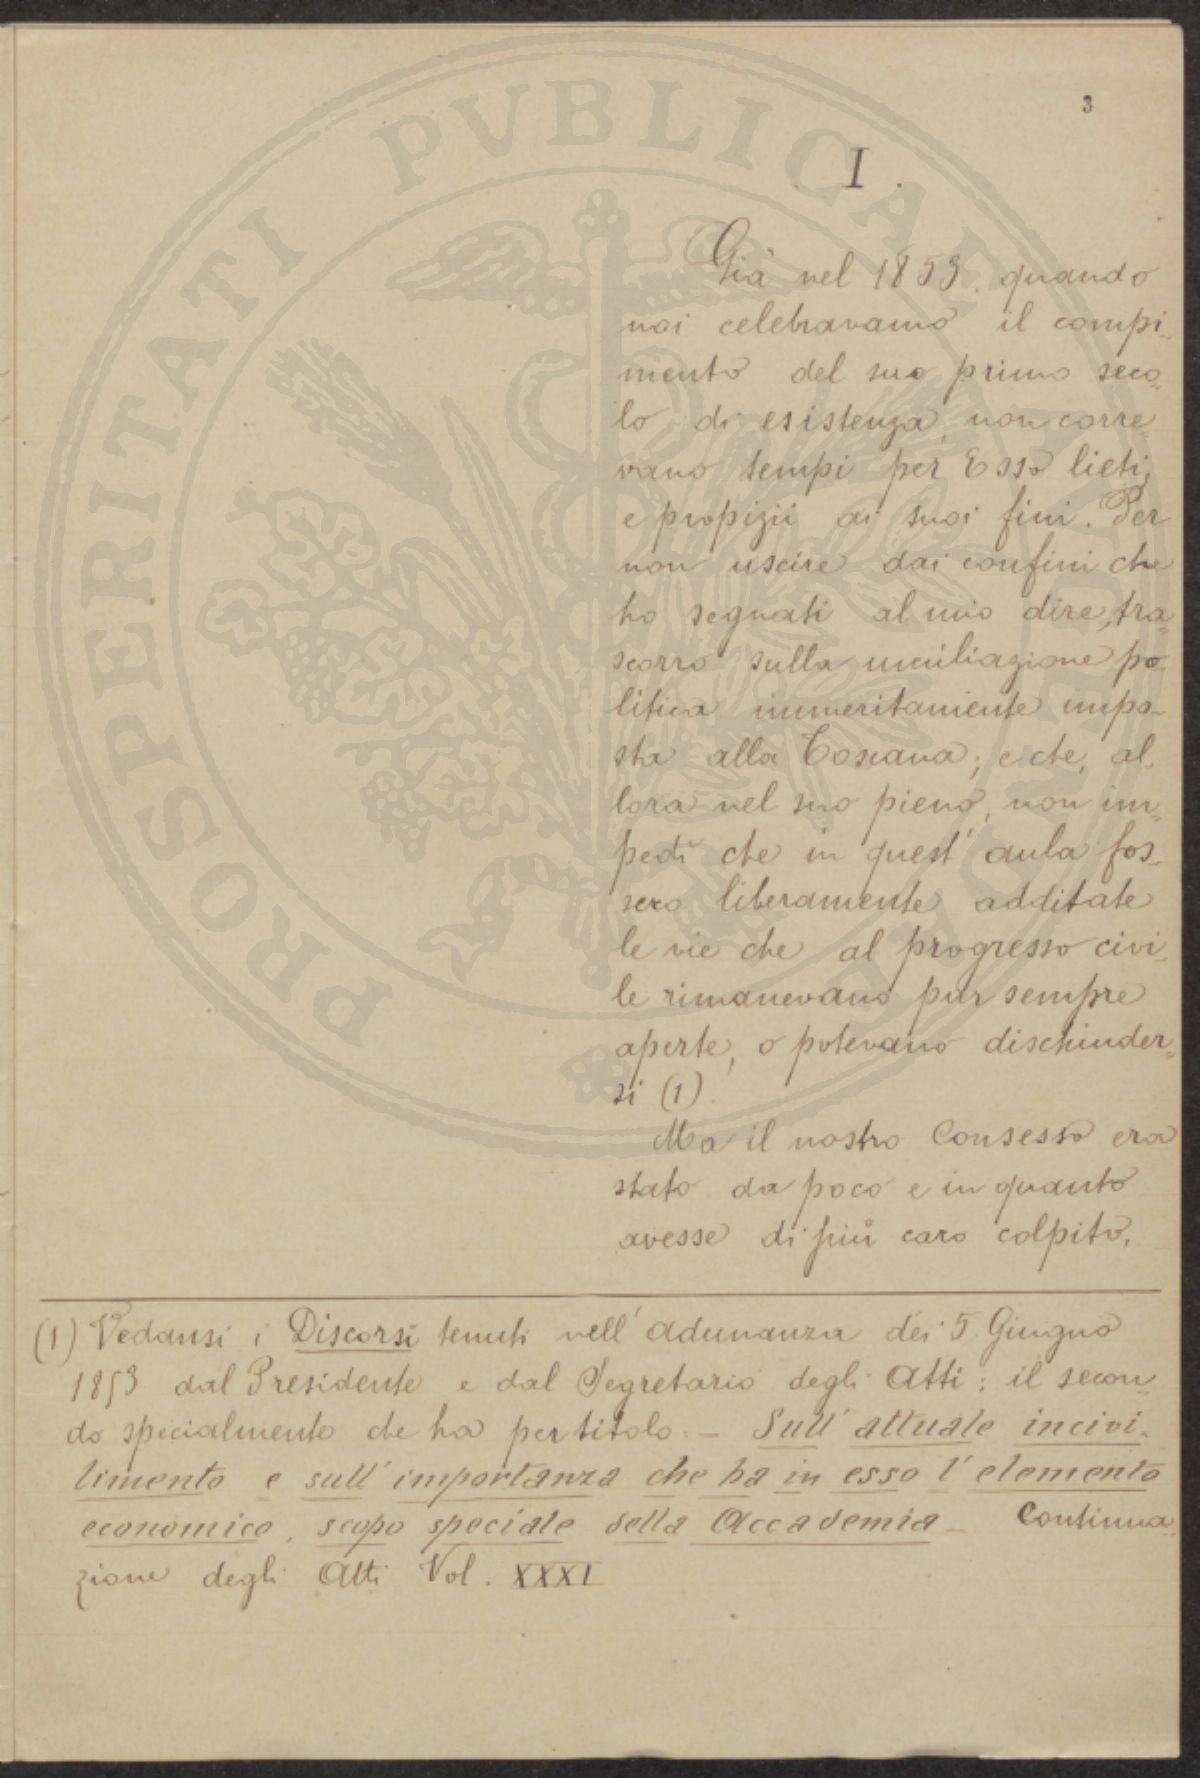 3
I.
Già nel 1853, quando
noi celebravamo il compi-
mento del suo primo seco-
lo di esistenza, non corre-
vano tempi per Esso lieti,
e propizii ai suoi fini. Per
non uscire dai confini che
ho segnati al mio dire, tra-
scorro sulla umiliazione po-
litica immeritamente impo-
sta alla Toscana; e che, al-
lora nel suo pieno, non im-
pedì che in quest'aula fos-
sero liberamente additate
le vie che al progresso civi-
le rimanevano pur sempre
aperte, o potevano dischiuder-
si (1).
Ma il nostro Consesso era
stato da poco e in quanto
avesse di più caro colpito,
(1) Vedansi i Discorsi tenuti nell'adunanza dei 5 Giugno
1853 dal Presidente e dal Segretario degli Atti; il secon-
do specialmente che ha per titolo: - Sull'attuale incivi-
limento e sull'importanza che ha in esso l'elemento
economico, scopo speciale della Accademia - Continua-
zione degli Atti Vol. XXXI
PROSPERITATI PVBLICAE